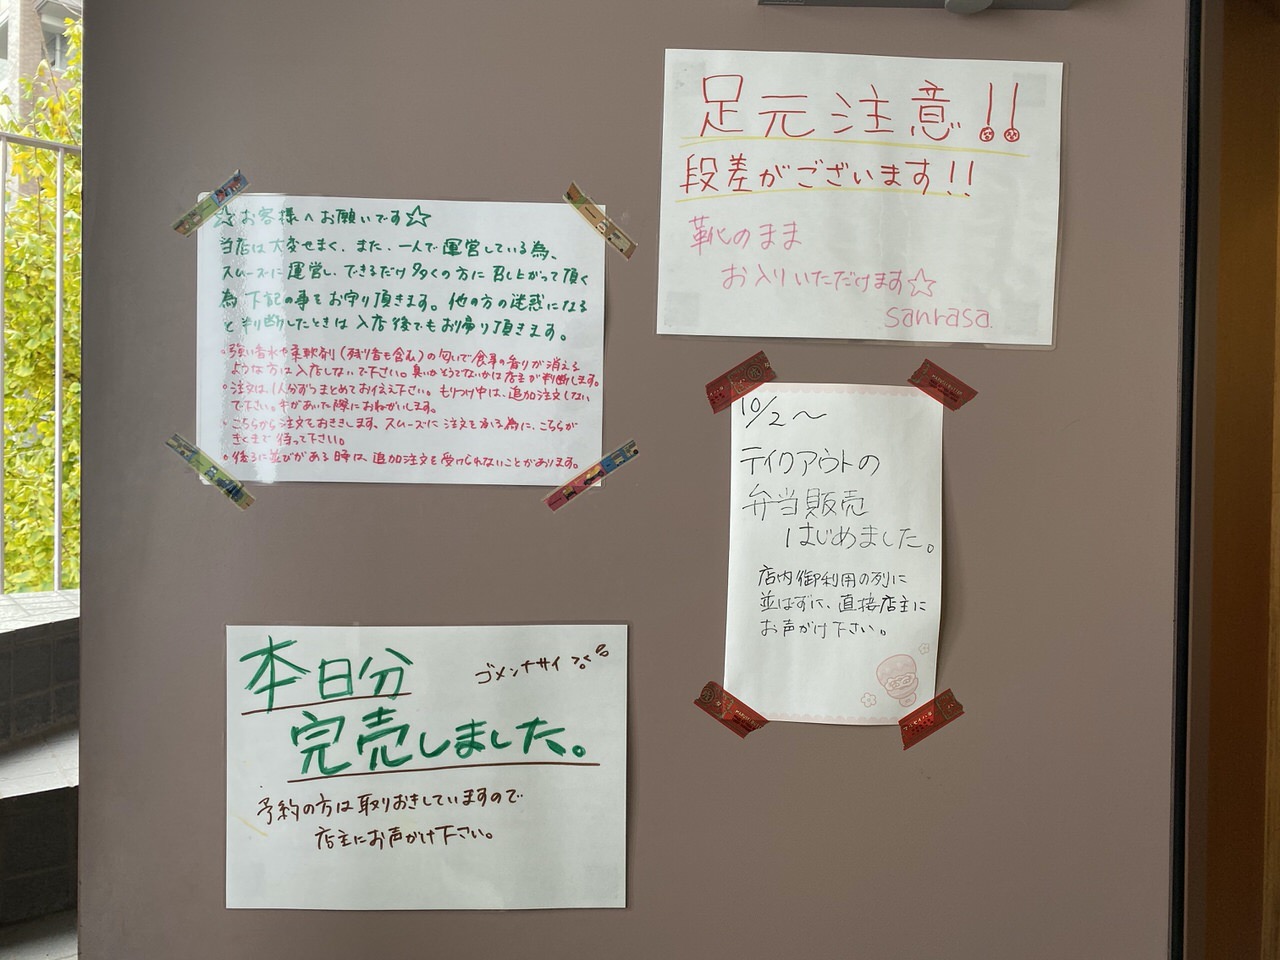 足元注意!!
段差がございます!!
靴のまま
お入りいただけます☆
sanrasa.
☆お客様へお願いです☆
当店は大変せまく、また、一人で運営している為、
スムーズに運営し、できるだけ多くの方に召し上がって頂く
為下記の事をお守り頂きます。他の方の迷惑になる
と判断したときは入店後でもお帰り頂きます。
・強い香水や柔軟剤(残り香も含む)の匂いで食事の香りが消える
ような方は入店しないで下さい。臭いかどうかは店主が判断します。
・注文は、1人分ずつまとめてお伝え下さい。もりつけ中は、追加注文しない
で下さい。手があいた際におねがいします。
・こちらから注文をおききします、スムーズに注文を承る為に、こちらが
きくまで待って下さい。
・後ろに並びがある時は、追加注文を受けられないことがあります。
10/2〜
テイクアウトの
弁当販売
はじめました。
店内御利用の列に
並ばずに、直接店主に
お声がけ下さい。
本日分
ゴメンナサイ
完売しました。
予約の方は取りおきしていますので
店主にお声かけ下さい。